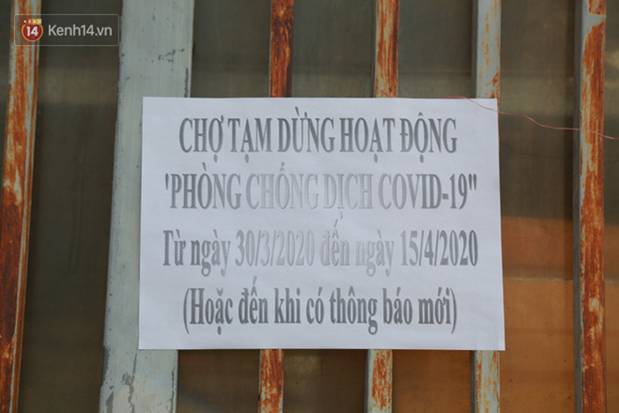 14 Kenh14.vn
CHỢ TẠM DỪNG HOẠT ĐỘNG
'PHÒNG CHỐNG DỊCH COVID-19"
Từ ngày 30/3/2020 đến ngày 15/4/2020
(Hoặc đến khi có thông báo mới)